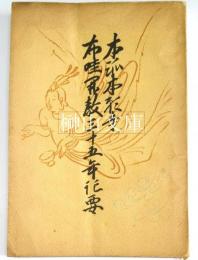 本派本願寺
布哇開教三十五年記要
柳田文庫